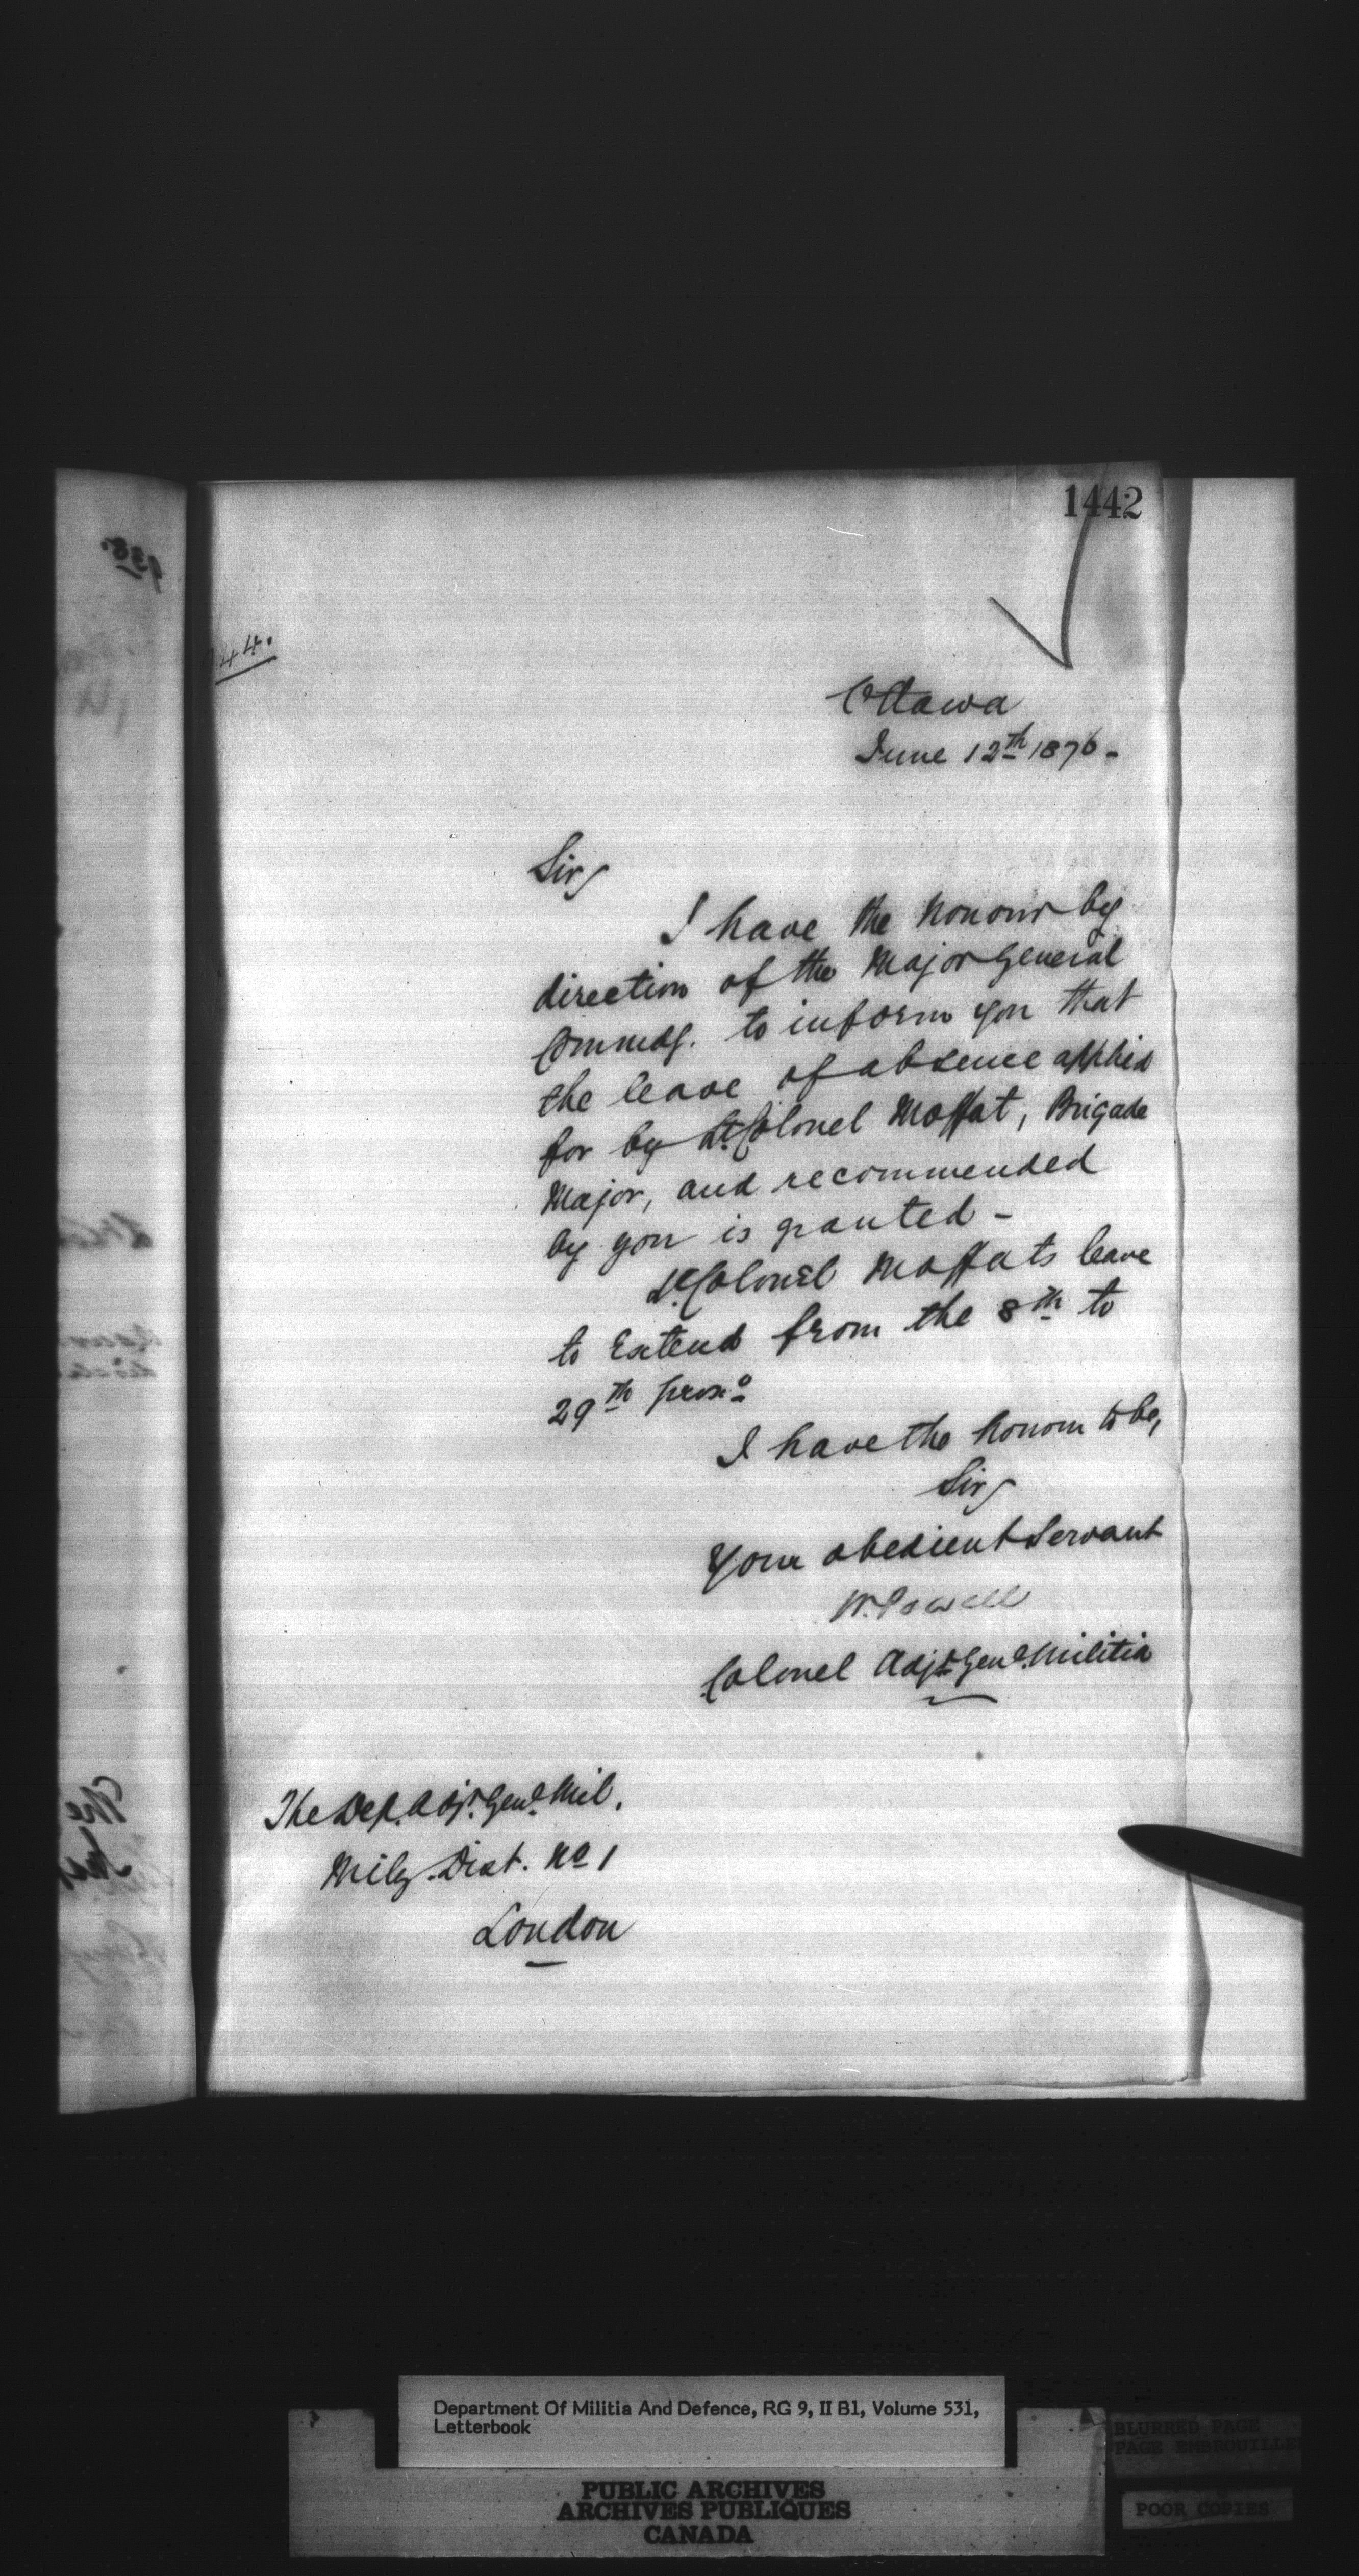 1442
44.
Ottawa
June 12th 1876-
Sir,
I have the honour by
direction of the Major General
Commdg. to inform you that
the leave of absence applied
for by Lt. Colonel Moffat, Brigade
Major, and recommended
by you is granted -
Lt. Colonel Moffats leave
to Extend from the 8th to
29th proxo
I have the honour to be,
Sir,
Your obedient Servant
W. Powell
Colonel Adjt. Genl. Militia
The Dep. Adjt. Genl. Mil.
Mily. Dist. No 1
London
Department Of Militia And Defence, RG 9, II B1, Volume 531,
Letterbook
PUBLIC ARCHIVES
ARCHIVES PUBLIQUES
CANADA
BLURRED PAGE
PAGE EMBROUILLE
POOR COPIES